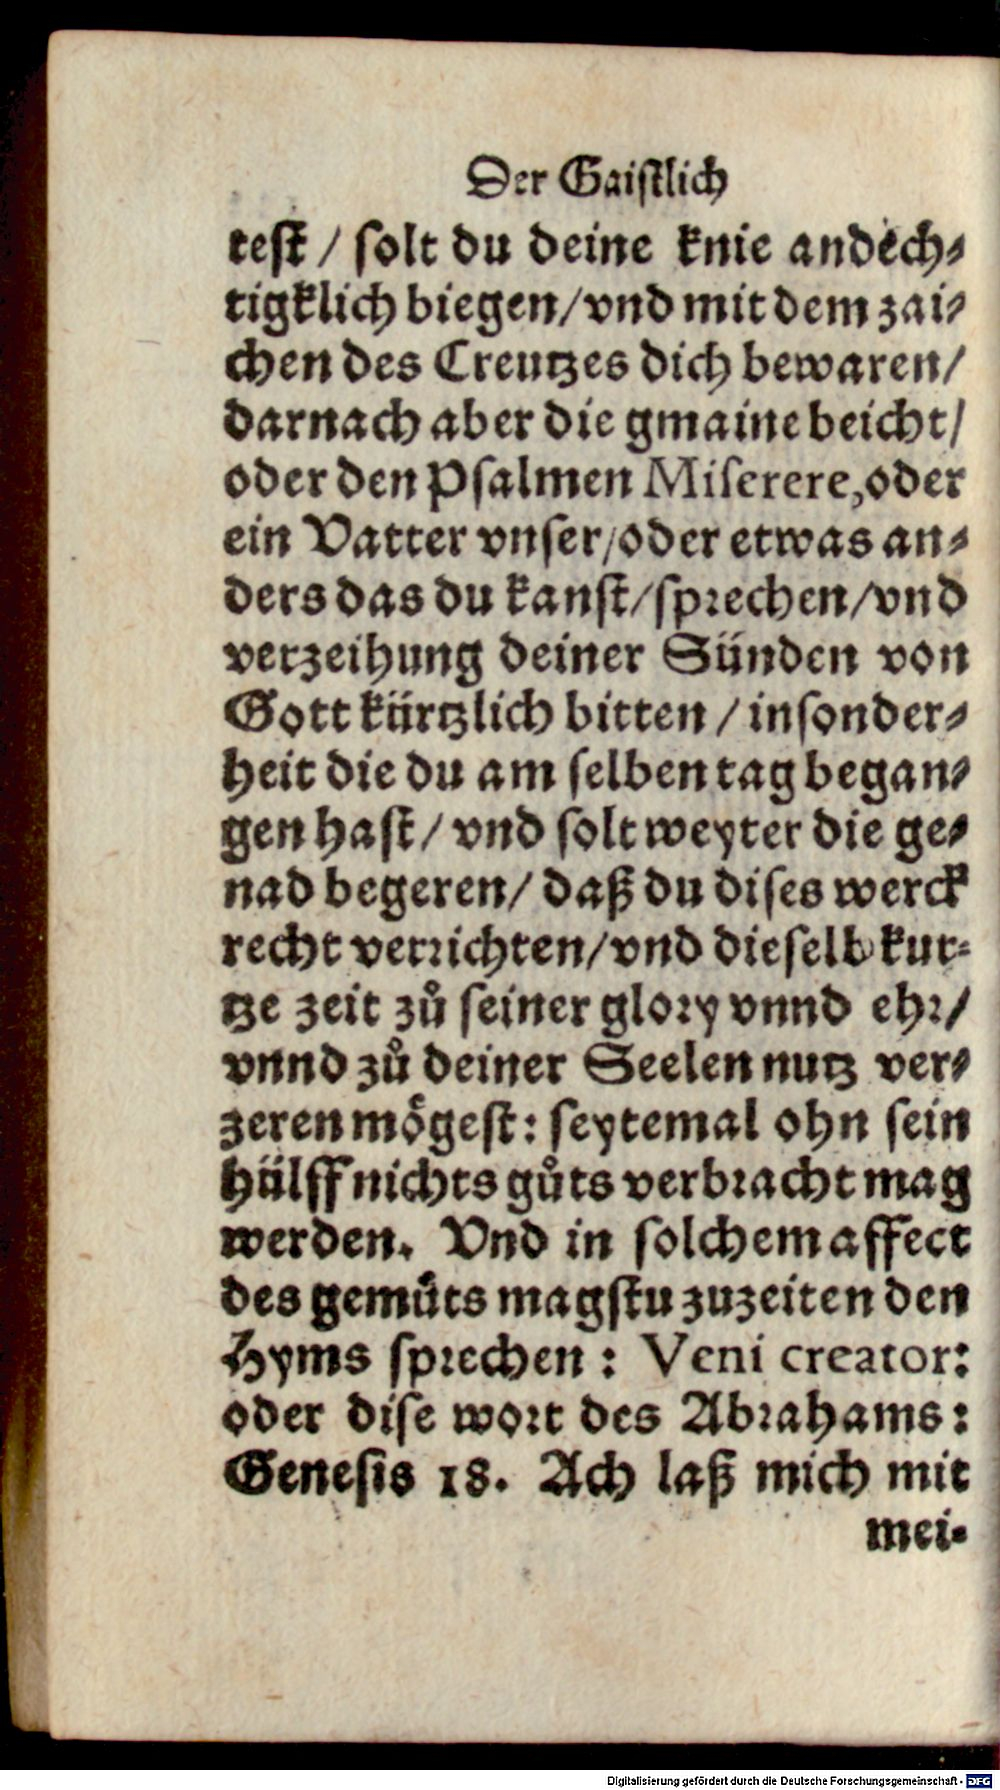 Der Gaistlich
test / solt du deine knie andech⸗
tigklich biegen/vnd mit dem zai⸗
chen des Creutzes dich bewaren/
darnach aber die gmaine beicht/
oder den Psalmen Miserere, oder
ein Vatter vnser/oder etwas an⸗
ders das du kanst/sprechen/vnd
verzeihung deiner Sünden von
Gott kürtzlich bitten / insonder⸗
heit die du am selben tag began⸗
gen hast/ vnd solt weyter die ge⸗
nad begeren/ daß du dises werck
recht verrichten/vnd dieselb kur⸗
tze zeit zů seiner glory vnnd ehr/
vnnd zů deiner Seelen nutz ver⸗
zeren mögest: seytemal ohn sein
hülff nichts gůts verbracht mag
werden. Vnd in solchem affect
des gemůts magstu zuzeiten den
Hyms sprechen : Veni creator:
oder dise wort des Abrahams:
Genesis 18. Ach laß mich mit
mei⸗
Digitalisierung gefördert durch die Deutsche Forschungsgemeinschaft - DFG